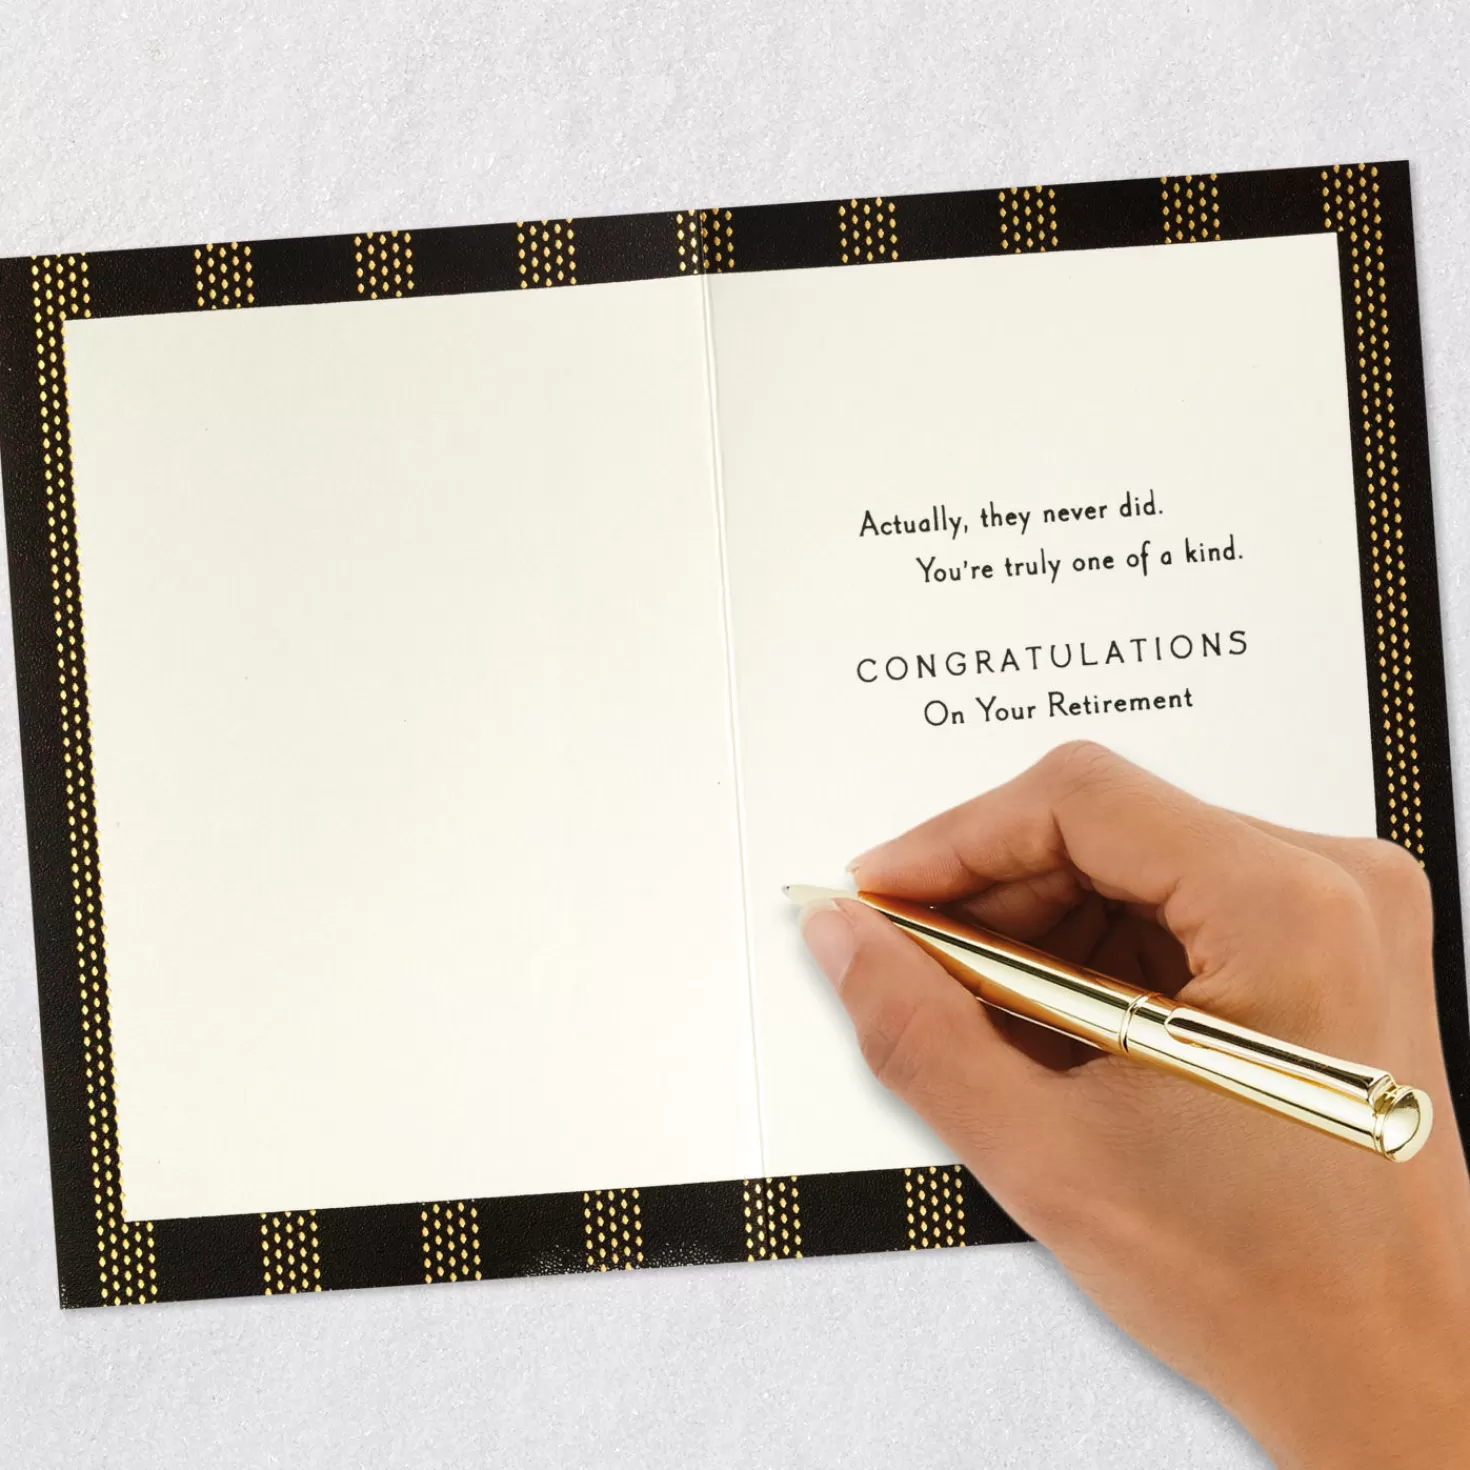 Actually, they never did.
You're truly one of a kind.
CONGRATULATIONS
On Your Retirement